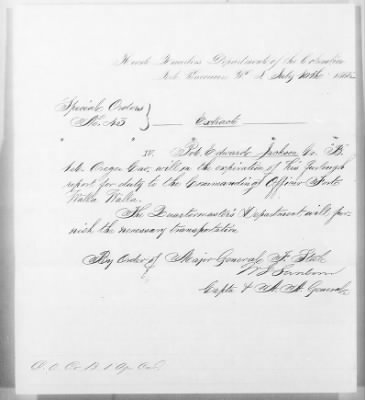 Head Quarters Department of the Columbia
Fort Vancouver W. T. July 10th 1865
Special Orders
No. 43
Extract
" " " " "
IV. Pvt. Edward Jackson Co. "B"
1st. Oregon Cav. will on the expiration of his furlough
report for duty to the Commanding Officer Fort
Walla Walla.
The Quartermaster's Department will fur-
nish the necessary transportation
By Order of Major General F. Steele
Capt. & A. A. General
C. O. Co. B. 1 Ogn Cav